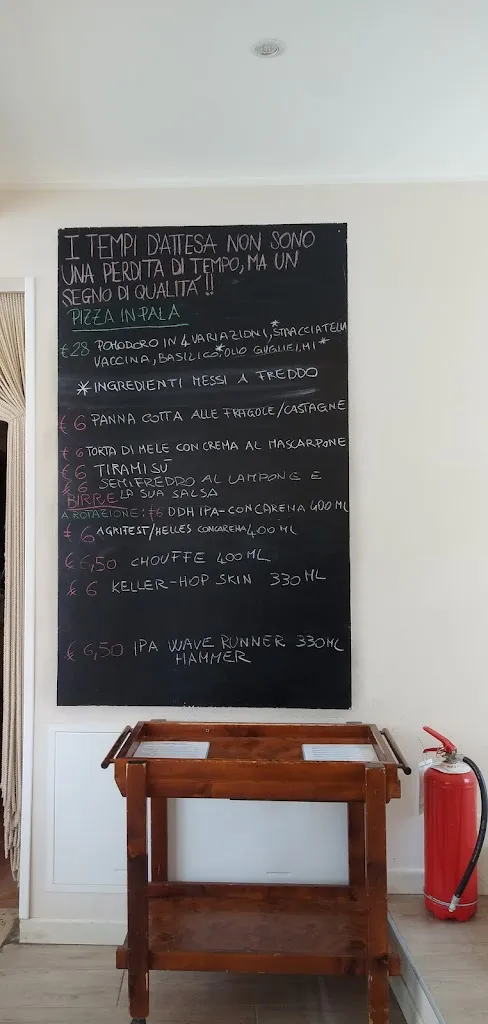 I TEMPI D'ATTESA NON SONO
UNA PERDITA DI TEMPO, MA UN
SEGNO DI QUALITÀ !!
PIZZA IN PALA
€ 28 POMODORO IN 4 VARIAZIONI, *STRACCIATELLA
VACCINA, BASILICO*, OLIO GUGLIELMI *
* INGREDIENTI MESSI A FREDDO
€ 6 PANNA COTTA ALLE FRAGOLE/CASTAGNE
€ 6 TORTA DI MELE CON CREMA AL MASCARPONE
€ 6 TIRAMISÙ
€ 6 SEMIFREDDO AL LAMPONE E
LA SUA SALSA
BIRRE
A ROTAZIONE: €6 DDH IPA-CONCARENA 400 ML
€ 6 AGRIFEST/HELLES CONCARENA 400 ML
€ 6,50 CHOUFFE 400 ML
€ 6 KELLER-HOP SKIN 330 ML
€ 6,50 IPA WAVE RUNNER 330 ML
HAMMER